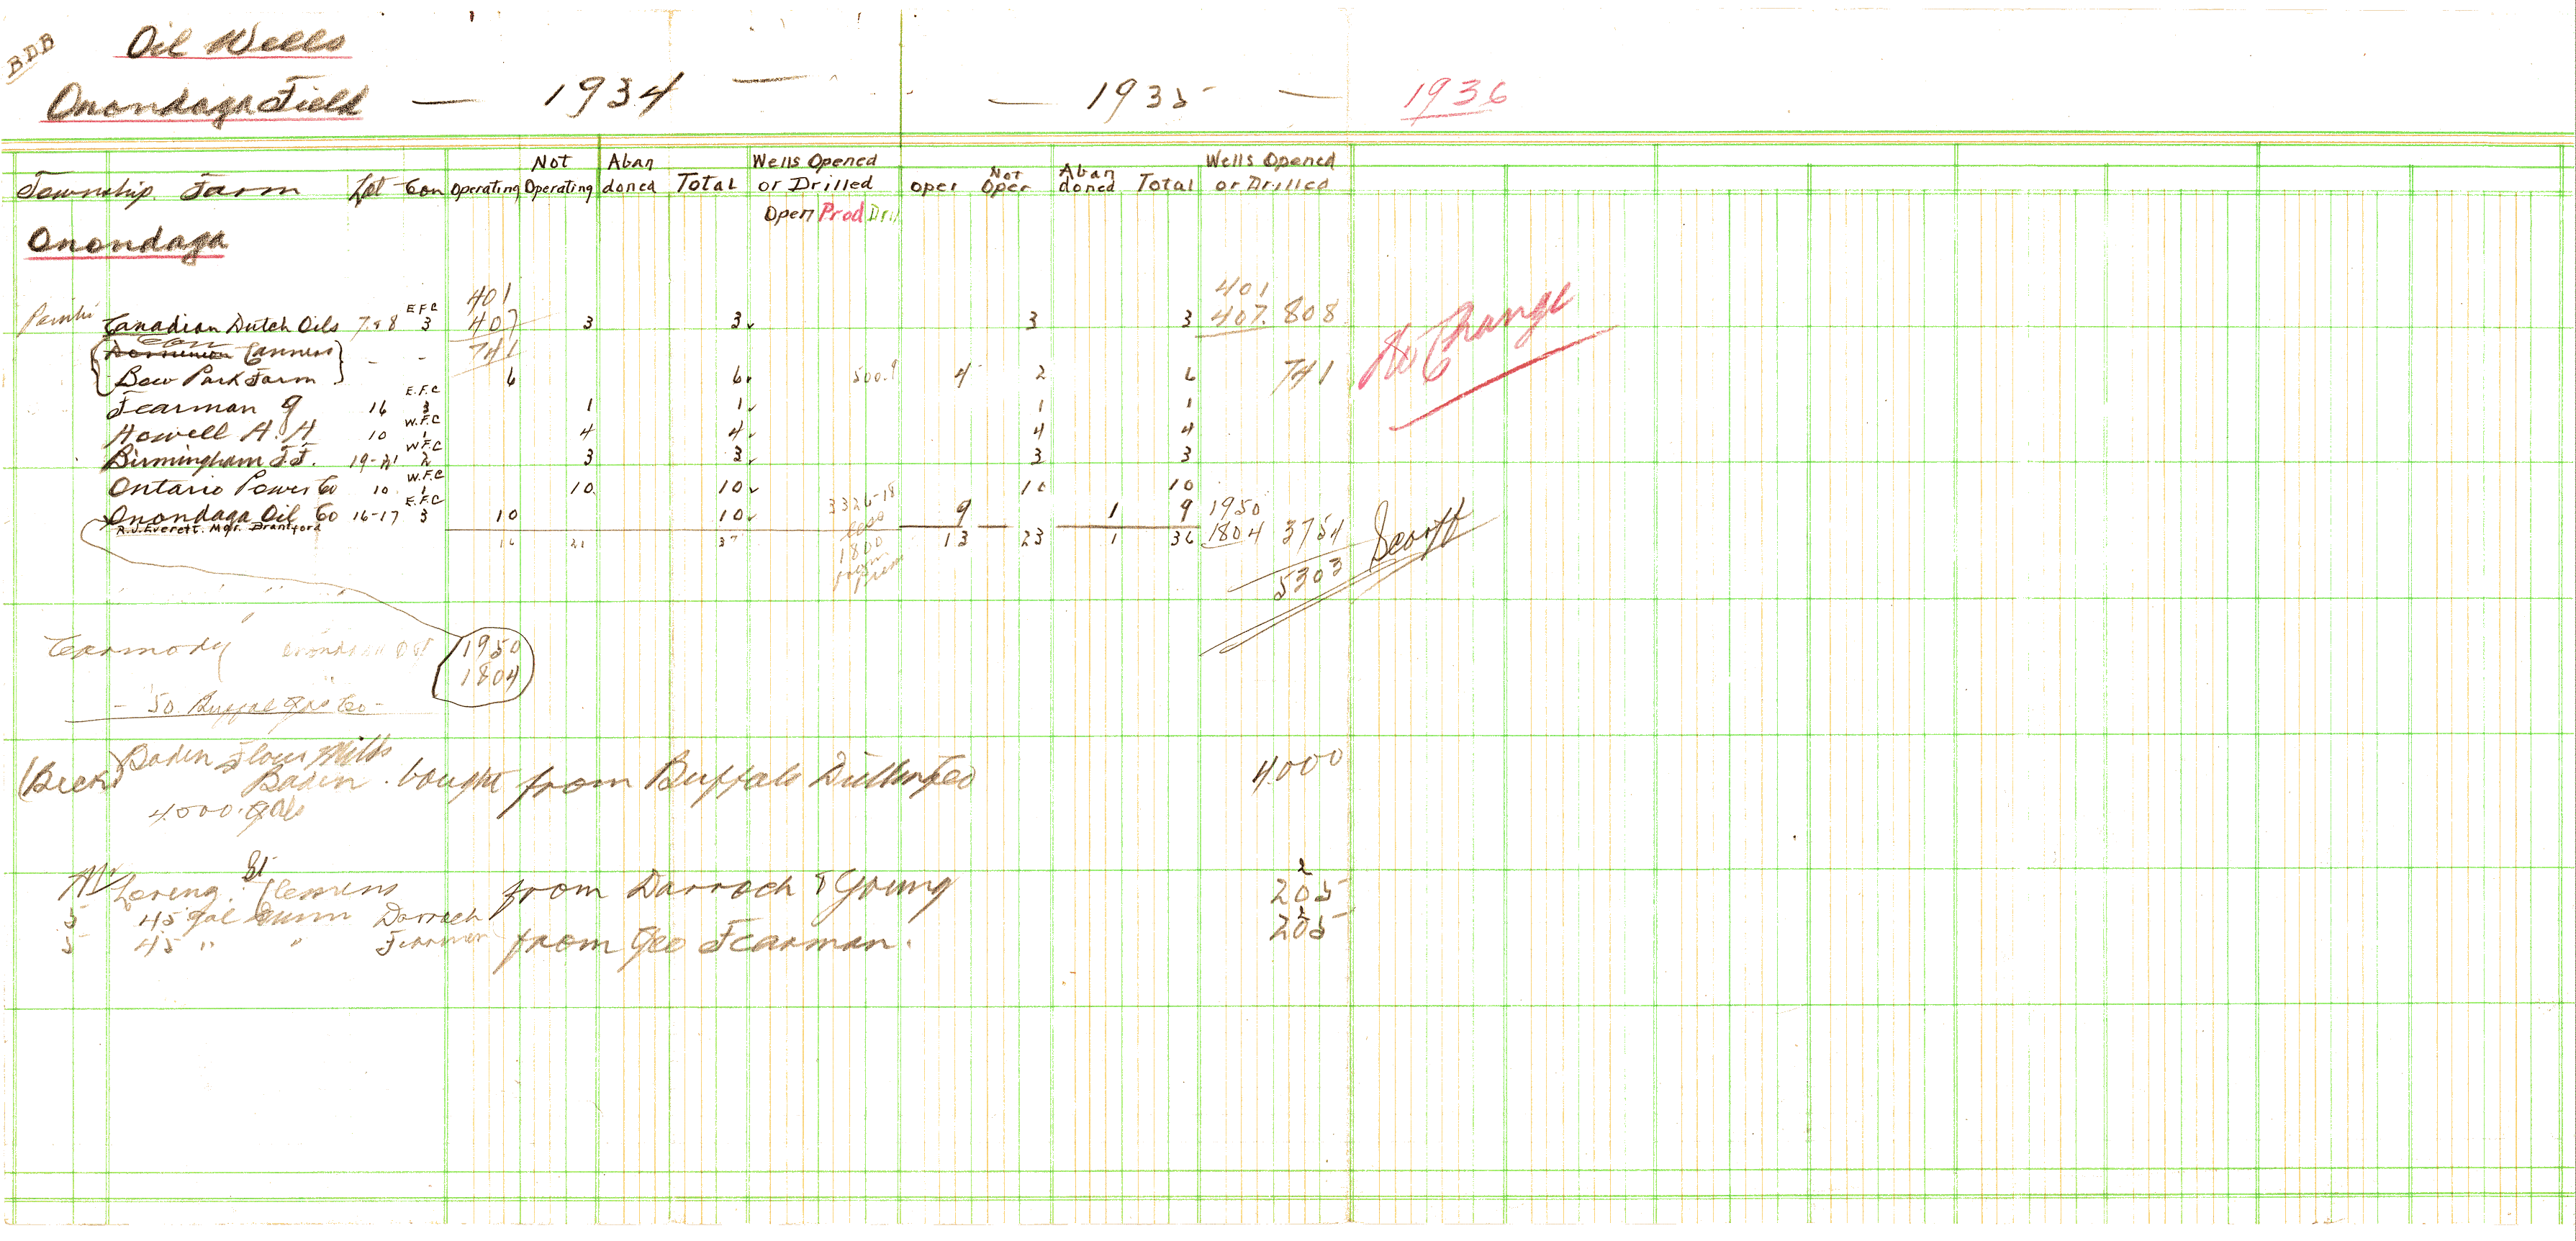 B.D.B
Oil Wells
Onondaga Field — 1934 — — 1935 — 1936
Township. Farm Lot Con Operating Not Operating Aban doned Total Wells Opened or Drilled oper Not Oper Aban doned Total Wells Opened or Drilled
Open Prod Dril
Onondaga
401 401
Canadian Dutch Oils 7 & 8 E.F.C 3 407 3 3 3 3 407. 808
Canners 741
Bow Park Farm 6 6 500.9 4 2 6 741 No Change
Fearman G 16 E.F.C 3 1 1 1 1
Howell A. H 10 W.F.C 1 4 4 4 4
Birmingham J.J. 19-21 W.F.C 2 3 3 3 3
Ontario Power Co 10 W.F.C 1 10 10 10 10
Onondaga Oil Co 16-17 E.F.C 3 10 10 3326-18 9 1 9 1950
R.J. Everett. Mgr. Brantford
16 21 37 1800 from 13 23 1 36 1804 3754 Scott
5303
Carmody 1950
1804
- 50. Gas Co -
(Beck) Baden Flour Mills
Baden. bought from Buffalo 4000
4000. Gals
Mr Loreng. St Clemens from Darroch & Young 205 2
5 45 gal Darroch 205 2
5 45 " " Fearman from Geo Fearman.